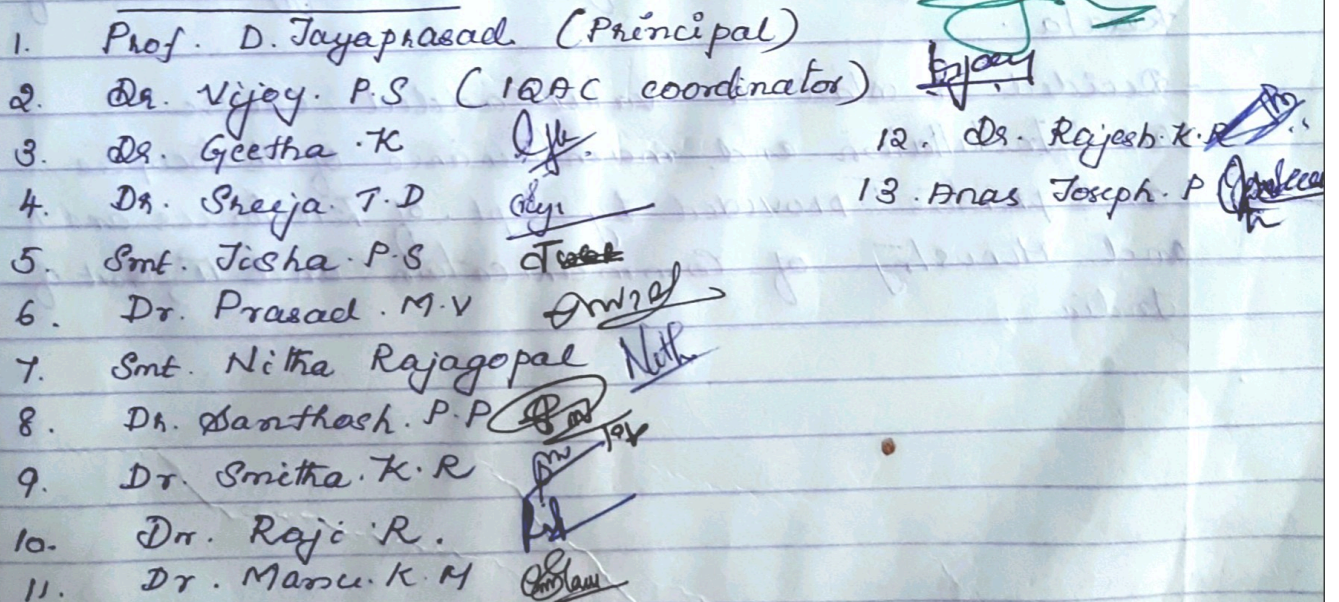 1. Prof. D. Jayaprasad (Principal)
2. Dr. Vijoy. P.S (IQAC coordinator)
3. Dr. Geetha .K
4. Dr. Sheeja. T.D
5. Smt. Jisha. P.S
6. Dr. Prasad. M.V
7. Smt. Nitha Rajagopal
8. Dr. Santhosh. P.P
9. Dr. Smitha. K.R
10. Dr. Raji R.
11. Dr. Manu. K.M
12. Dr. Rajesh. K.R
13. Anas Joseph. P